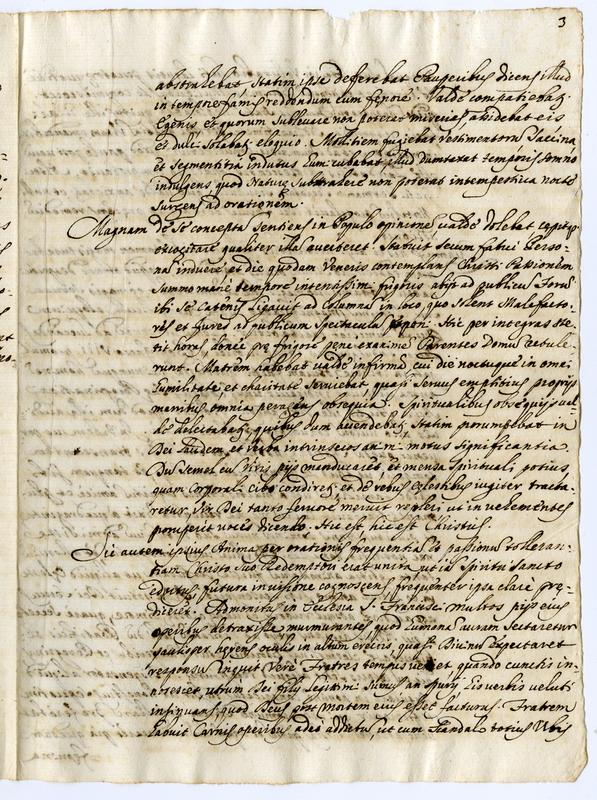 3
abstrahebat statim ipse deferebat Pauperibus dicens illud
in tempore famis reddendum cum fenore. Valde compatiebat
Egenis et quorum sublevare non poterat miserias assidebat eis
et dulci solabat eloquio. Mollitiem fugiebat vestimentorum
et Segmentitia indutus cum cubabat, illud dumtaxat temporis somno
indulgens quod Naturae subtrahere non poterat intempestiva nocte
surgens ad orationem.
Magnam de se conceptam sentiens in Populo opinionem valde dolebat
excogitare qualiter illam averteret. Statuit secum fatui Perso-
nam induere, et die quodam Veneris contemplans Christi Passionem
summo mane tempore intensissimi frigoris abijt ad publicum Forum
ibi se Catenis ligavit ad Columnam in loco, quo solent Malefacto-
res et fures ad publicum spectaculum poni. Hic per integras ste-
tit horas, donec prae frigore pene exanimem Parentes domum retule-
runt. Matrem habebat valde infirmam cui die noctuque in omni
humilitate, et charitate serviebat quasi servus emptitius proprijs
manibus omnia peragens obsequia. Spiritualibus obsequijs val-
de delectabat, quibus dum attendebat statim prorumpebat in
Dei laudem, et verba intrinsecos animi motus significantia.
Dum semel cum Viris pijs manducaret, et mensa spirituali potius,
quam corporali cibo condiret, et de rebus celestibus iugiter tracta-
retur, Dei tanto fervore meruit repleri ut in vehementes
proruperit voces dicendo. Hic est hic est Christus.
Sic autem ipsius Anima per orationis frequentiam et passionis tolleran-
tiam Christo suo Redemptori erat unita, ut a Spiritu Sancto
edoctus, futura in visione cognoscens frequenter ipsa clare prae-
diceret. Admonitus in Ecclesia S. Francisci multos pijs eius
operibus detraxisse murmurantes quod humanam auram sectaretur
paulisper herens oculis in altum erectis, quasi Divinum expectaret
responsum inquit Vere Fratres tempus veniet quando cunctis in-
notescet utrum Dei filij legitimi sumus an spurij eis verbis veluti
insinuans, quod Deus post mortem eius esset facturus. Fratrem
habuit Carnis operibus adeo addictum ut cum scandalo totius Urbis